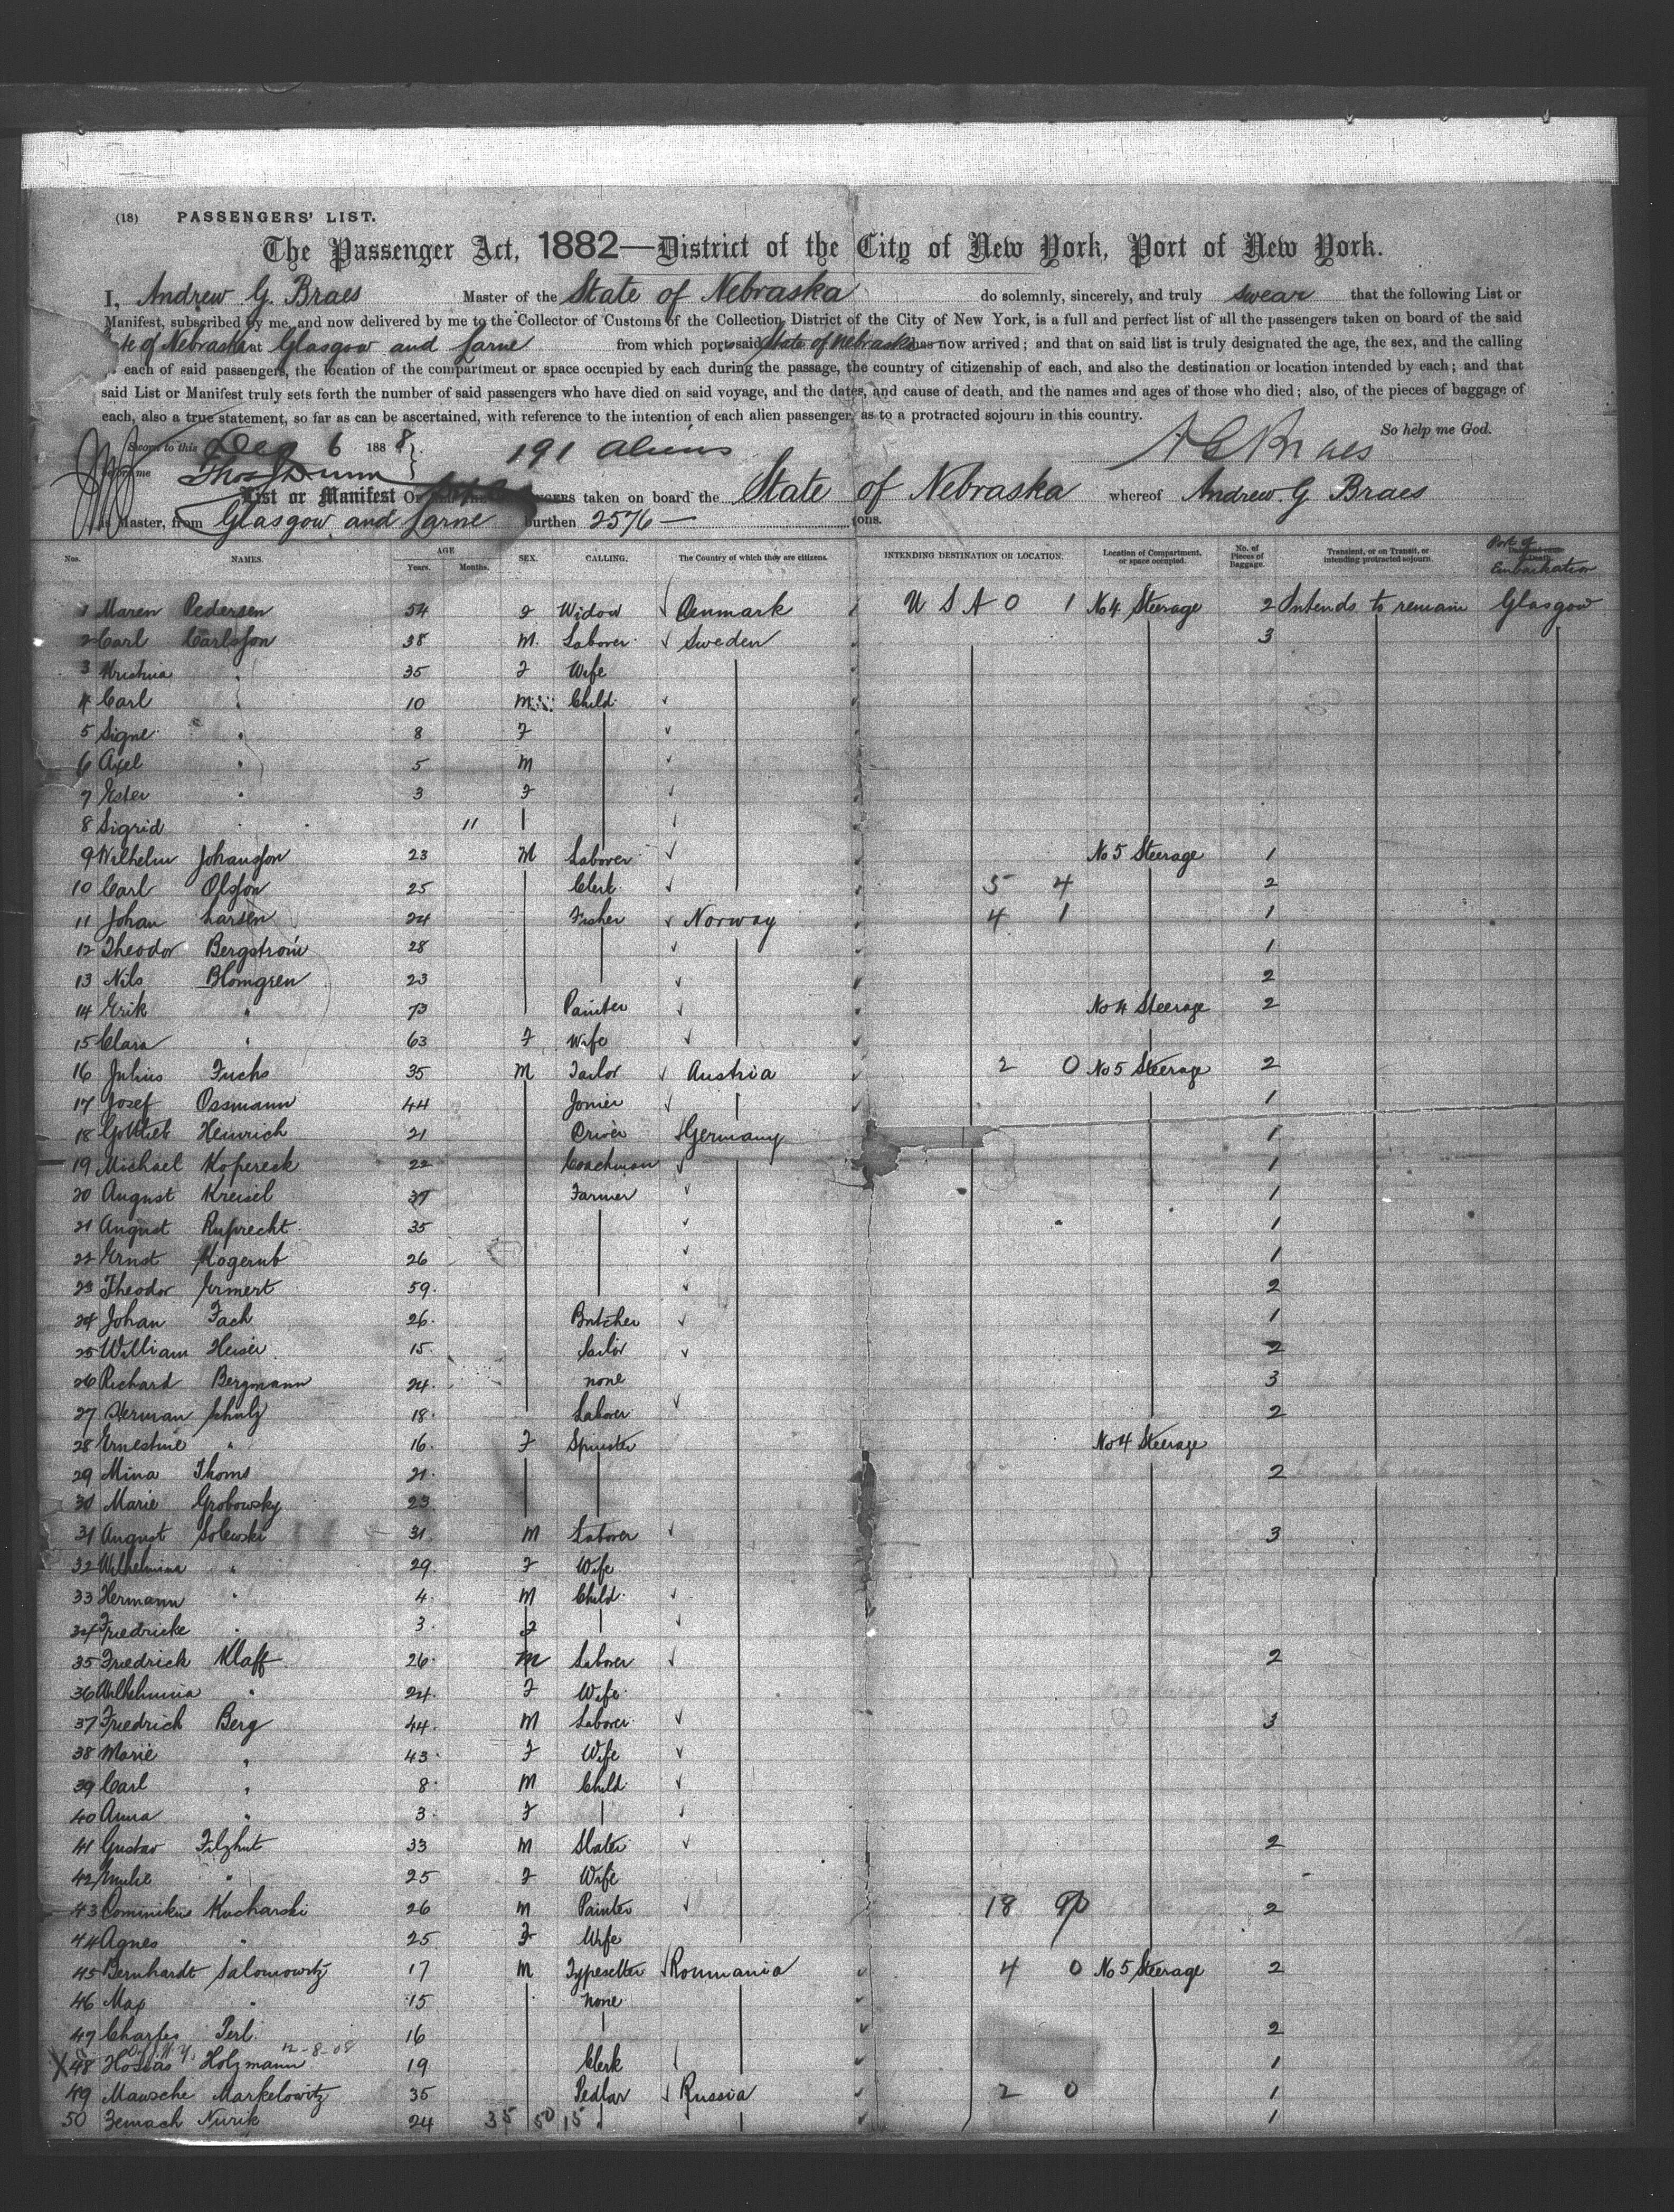 (18) PASSENGERS' LIST.
The Passenger Act, 1882—District of the City of New York, Port of New York.
I, Andrew G. Braes Master of the State of Nebraska do solemnly, sincerely, and truly swear that the following List or
Manifest, subscribed by me, and now delivered by me to the Collector of Customs of the Collection District of the City of New York, is a full and perfect list of all the passengers taken on board of the said
te of Nebraska at Glasgow and Larne from which port said State of Nebraska has now arrived; and that on said list is truly designated the age, the sex, and the calling
each of said passengers, the location of the compartment or space occupied by each during the passage, the country of citizenship of each, and also the destination or location intended by each; and that
said List or Manifest truly sets forth the number of said passengers who have died on said voyage, and the dates, and cause of death, and the names and ages of those who died; also, of the pieces of baggage of
each, also a true statement, so far as can be ascertained, with reference to the intention of each alien passenger, as to a protracted sojourn in this country.
So help me God.
Sworn to this Dec 6 1888 191 Aliens A G Braes
before me Thos Dunn
List or Manifest taken on board the State of Nebraska whereof Andrew G Braes
is Master, from Glasgow and Larne burthen 2576 — tons.
Nos. NAMES. AGE Years. Months. SEX. CALLING. The Country of which they are citizens. INTENDING DESTINATION OR LOCATION. Location of Compartment, or space occupied. No. of Pieces of Baggage. Transient, or on Transit, or intending protracted sojourn. Port of Embarkation
1 Maren Pedersen 54 F Widow Denmark U S A 0 1 No 4 Steerage 2 Intends to remain Glasgow
2 Carl Carlsson 38 M. Laborer Sweden 3
3 Kristina " 35 F Wife
4 Carl " 10 M Child
5 Signe " 8 F
6 Axel " 5 M
7 Ester " 3 F
8 Sigrid " 11
9 Wilhelm Johansson 23 M Laborer No 5 Steerage 1
10 Carl Olsson 25 Clerk 5 4 2
11 Johan Larsen 24 Fisher Norway 4 1 1
12 Theodor Bergstrom 28 1
13 Nils Blomgren 23 2
14 Erik " 73 Painter No 4 Steerage 2
15 Clara " 63 F Wife
16 Julius Fuchs 35 M Tailor Austria 2 0 No 5 Steerage 2
17 Josef Ossmann 44 Joiner 1
18 Gottlieb Heinrich 21 Driver Germany 1
19 Michael Kopereck 22 Coachman 1
20 August Kreisel 37 Farmer 1
21 August Ruprecht 35 1
22 Ernst Kogerub 26 1
23 Theodor Ermert 59 2
24 Johan Fach 26 Butcher 1
25 William Heiser 15 Sailor 2
26 Richard Bergmann 24 none 3
27 Herman Schulz 18 Laborer 2
28 Ernestine " 16 F Spinster No 4 Steerage
29 Mina Thoms 21 2
30 Marie Grobowsky 23
31 August Solewski 31 M Laborer 3
32 Wilhelmina " 29 F Wife
33 Hermann " 4 M Child
34 Friedricke " 3 F
35 Friedrick Klaff 26 M Laborer 2
36 Wilhelmina " 24 F Wife
37 Friedrich Berg 44 M Laborer 3
38 Marie " 43 F Wife
39 Carl " 8 M Child
40 Anna " 3 F
41 Gustav Filzhut 33 M Slater 2
42 Emilie " 25 F Wife
43 Dominikus Kucharski 26 M Painter 18 2
44 Agnes " 25 F Wife
45 Bernhardt Salomowitz 17 M Typesetter Roumania 4 0 No 5 Steerage 2
46 Max " 15 none
47 Charles Perl 16 2
12-8-08
X 48 Hossias Holzmann 19 Clerk 1
49 Mausche Markelowitz 35 Pedlar Russia 2 0 1
50 Zemach Nurik 24 35 50 15 1